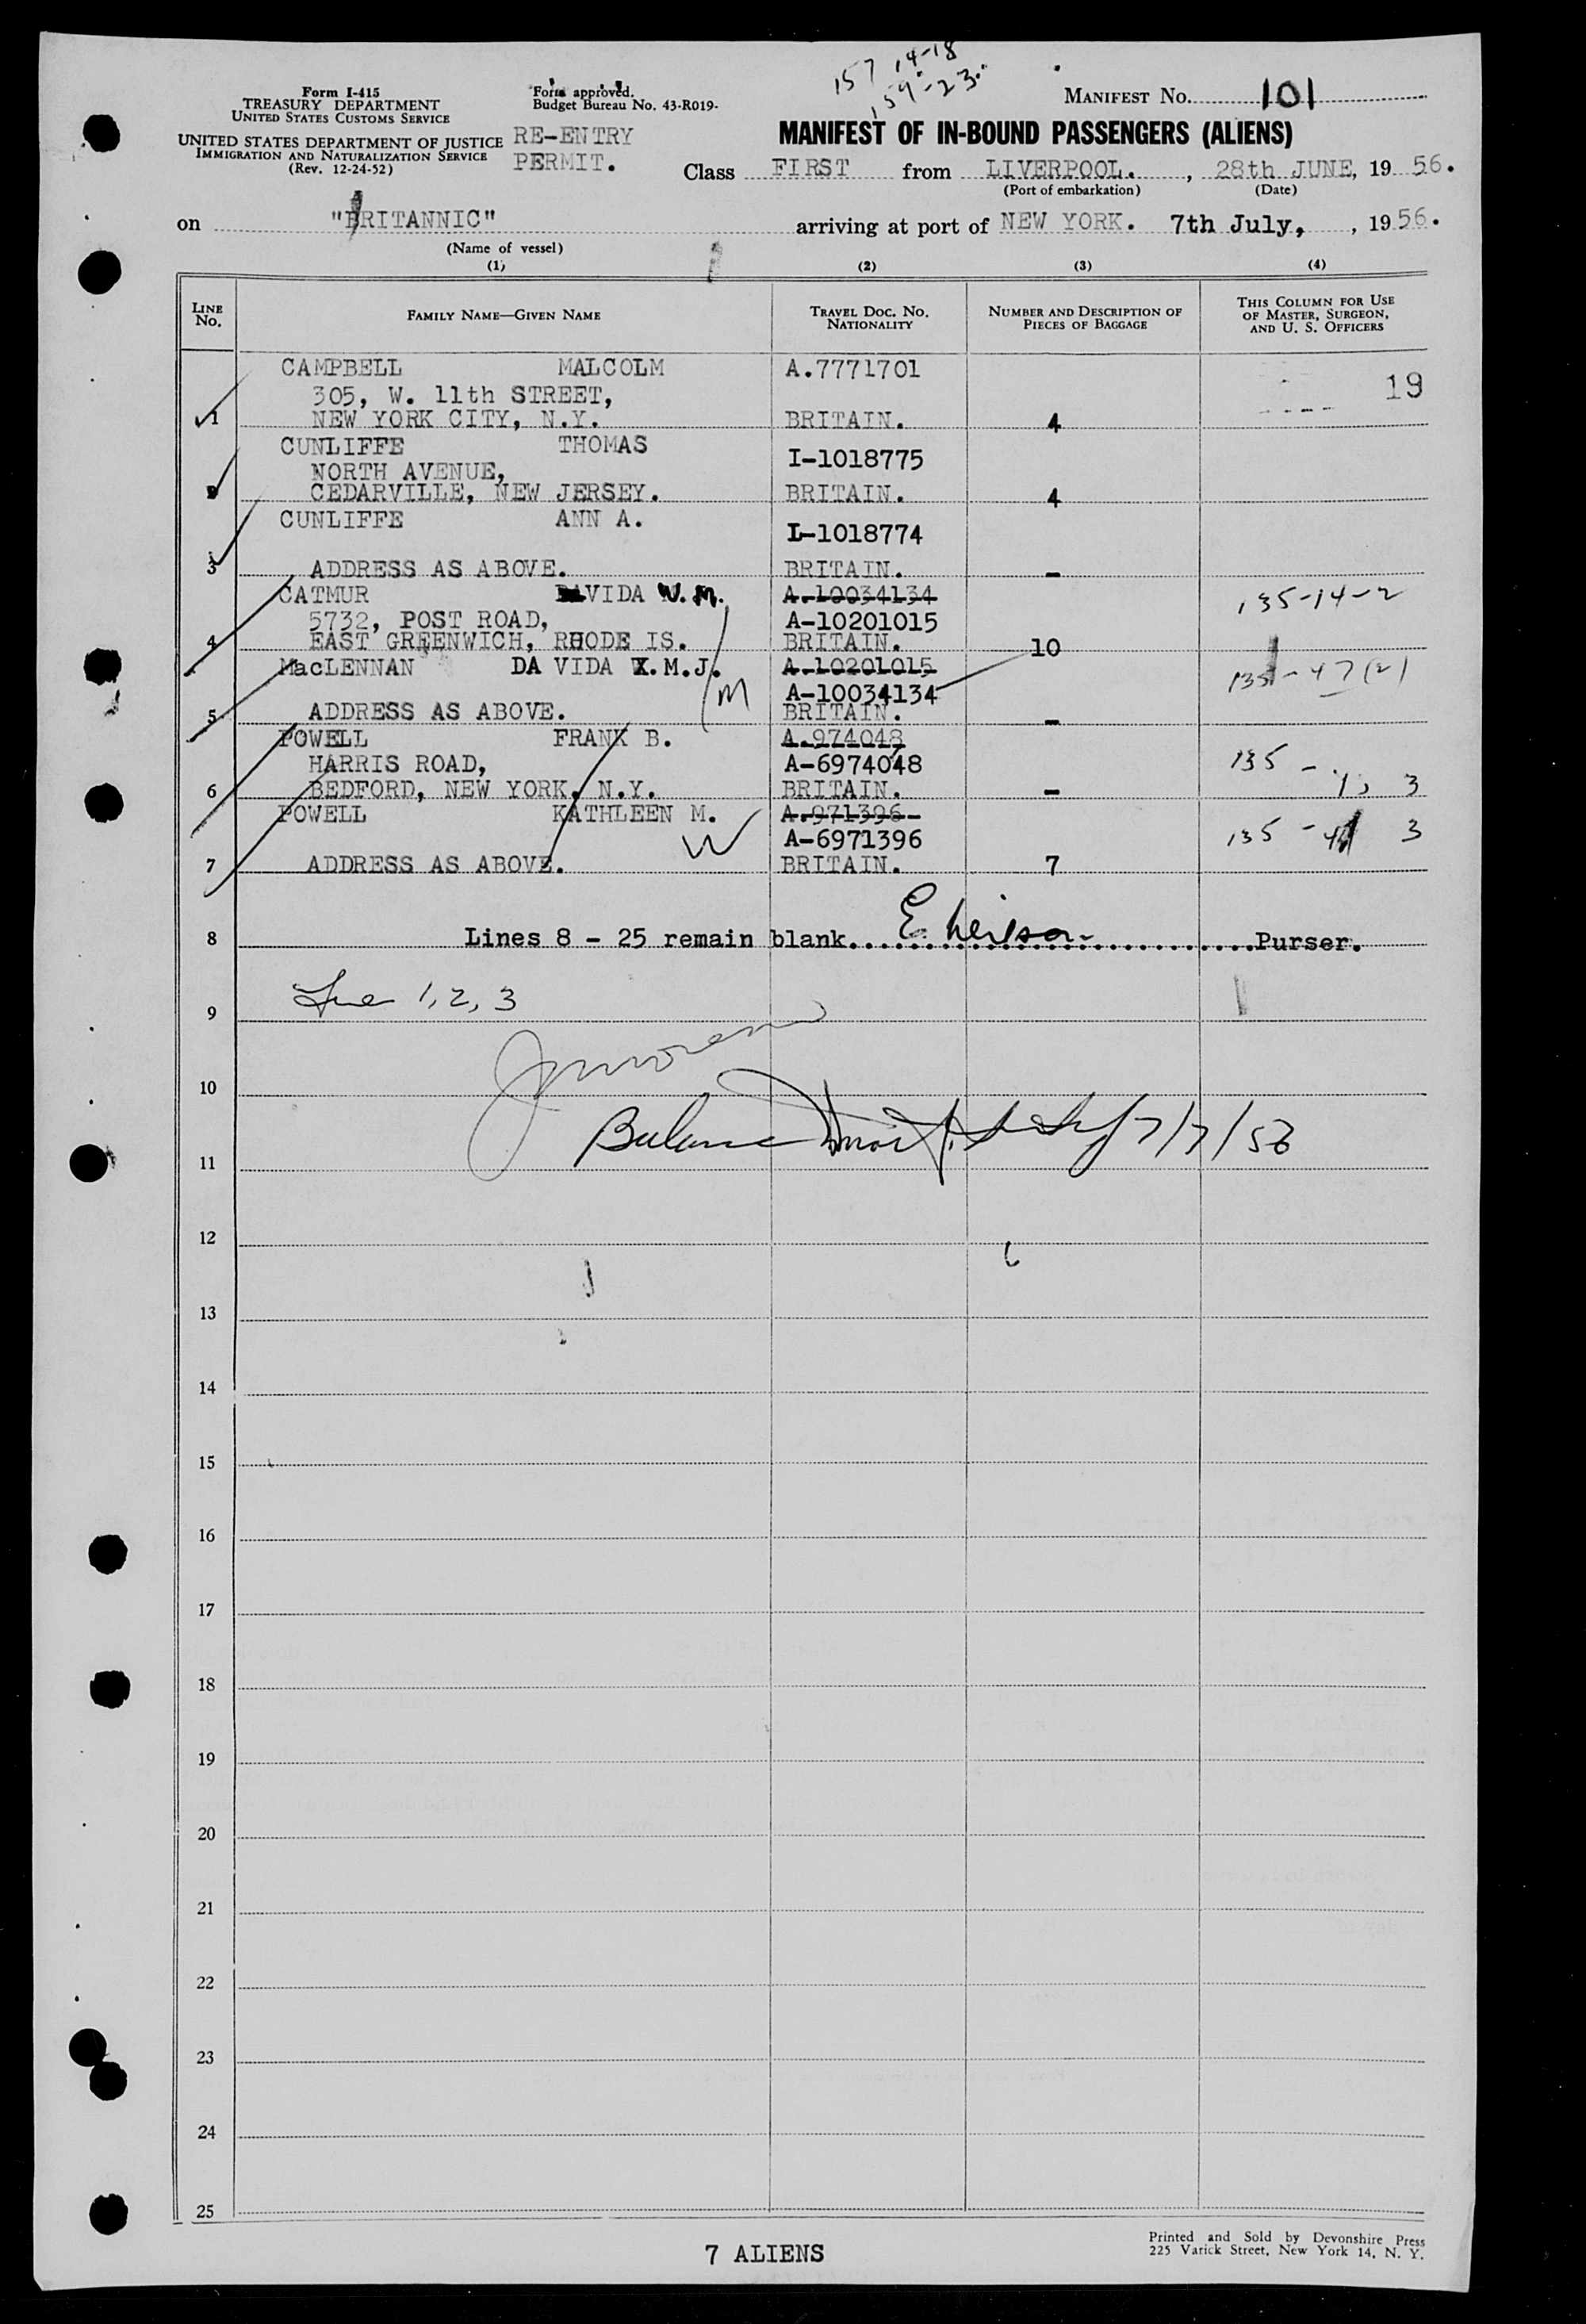 157 14-18
159-23
Form I-415
TREASURY DEPARTMENT
UNITED STATES CUSTOMS SERVICE
UNITED STATES DEPARTMENT OF JUSTICE
IMMIGRATION AND NATURALIZATION SERVICE
(Rev. 12-24-52)
Form approved.
Budget Bureau No. 43-R019-
RE-ENTRY
PERMIT.
MANIFEST NO. 101
MANIFEST OF IN-BOUND PASSENGERS (ALIENS)
Class FIRST from LIVERPOOL. , 28th JUNE, 19 56.
(Port of embarkation) (Date)
on "BRITANNIC" arriving at port of NEW YORK. 7th July, , 19 56.
(Name of vessel)
(1) (2) (3) (4)
LINE NO. FAMILY NAME—GIVEN NAME TRAVEL DOC. NO. NATIONALITY NUMBER AND DESCRIPTION OF PIECES OF BAGGAGE THIS COLUMN FOR USE OF MASTER, SURGEON, AND U. S. OFFICERS
CAMPBELL MALCOLM A.7771701 19
305, W. 11th STREET,
1 NEW YORK CITY, N.Y. BRITAIN. 4
CUNLIFFE THOMAS I-1018775
NORTH AVENUE,
CEDARVILLE, NEW JERSEY. BRITAIN. 4
CUNLIFFE ANN A. I-1018774
3 ADDRESS AS ABOVE. BRITAIN. -
CATMUR DAVIDA W.M. A.10034134 135-14-2
5732, POST ROAD, A-10201015
4 EAST GREENWICH, RHODE IS. BRITAIN. 10
MacLENNAN DA VIDA X.M.J. A.10201015 135-47(2)
M A-10034134
5 ADDRESS AS ABOVE. BRITAIN. -
POWELL FRANK B. A.974048
HARRIS ROAD, A-6974048 135 -
6 BEDFORD, NEW YORK, N.Y. BRITAIN. - 3
POWELL KATHLEEN M. A.971396-
A-6971396 135 - 3
7 ADDRESS AS ABOVE. BRITAIN. 7
8 Lines 8 - 25 remain blank. Purser.
9 1, 2, 3
10
11 7/7/56
12
13
14
15
16
17
18
19
20
21
22
23
24
25
7 ALIENS
Printed and Sold by Devonshire Press
225 Varick Street, New York 14, N. Y.